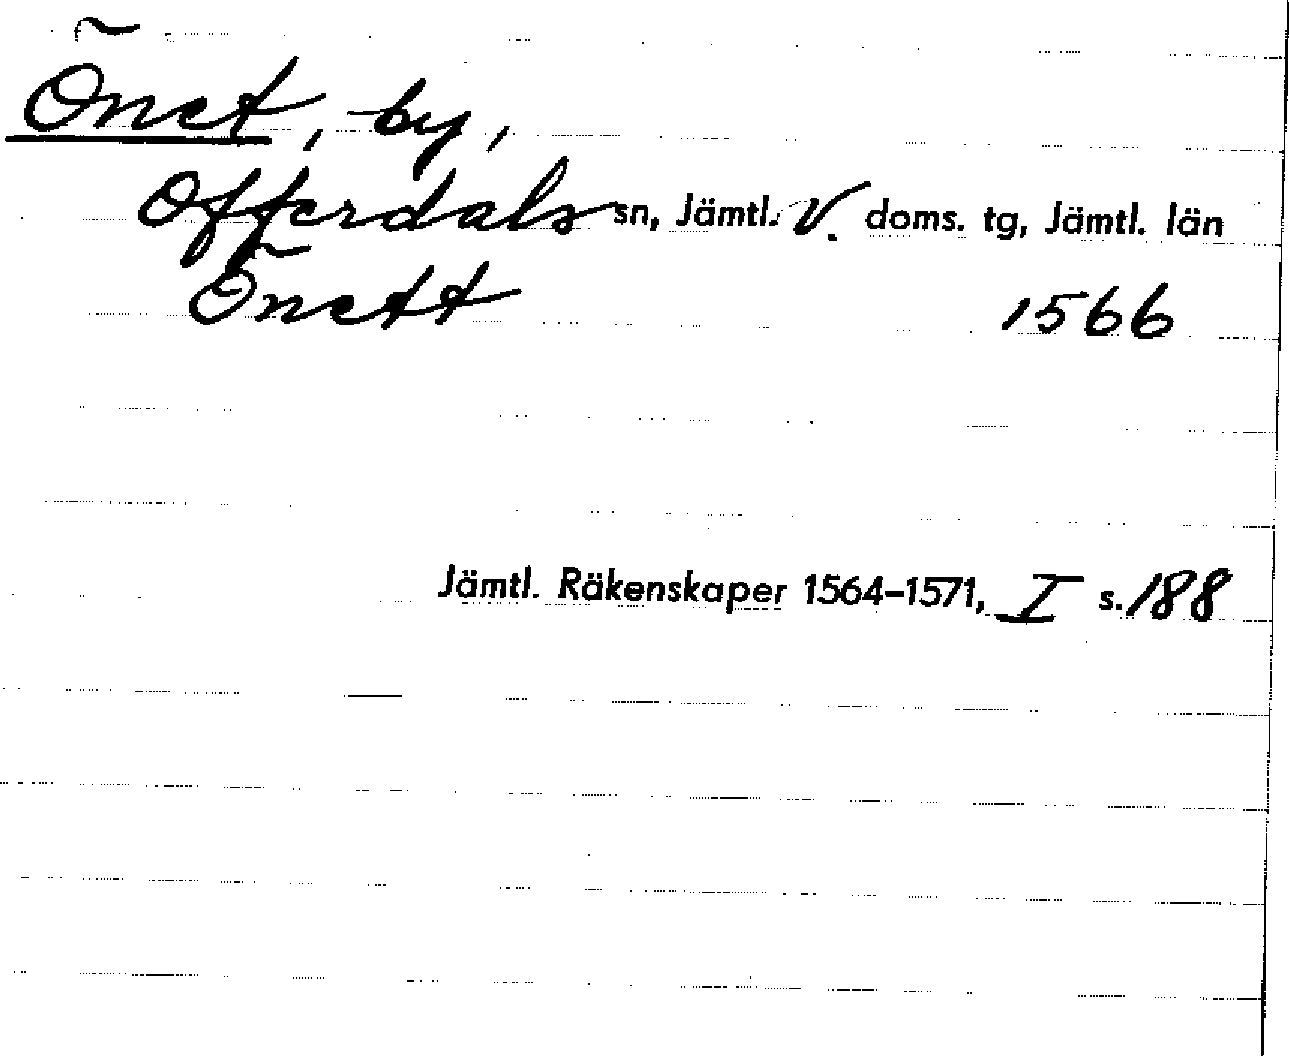 Önet, by,
Offerdals sn, Jämtl. V. doms. tg, Jämtl. län
Önett 1566
Jämtl. Räkenskaper 1564–1571, I s. 188